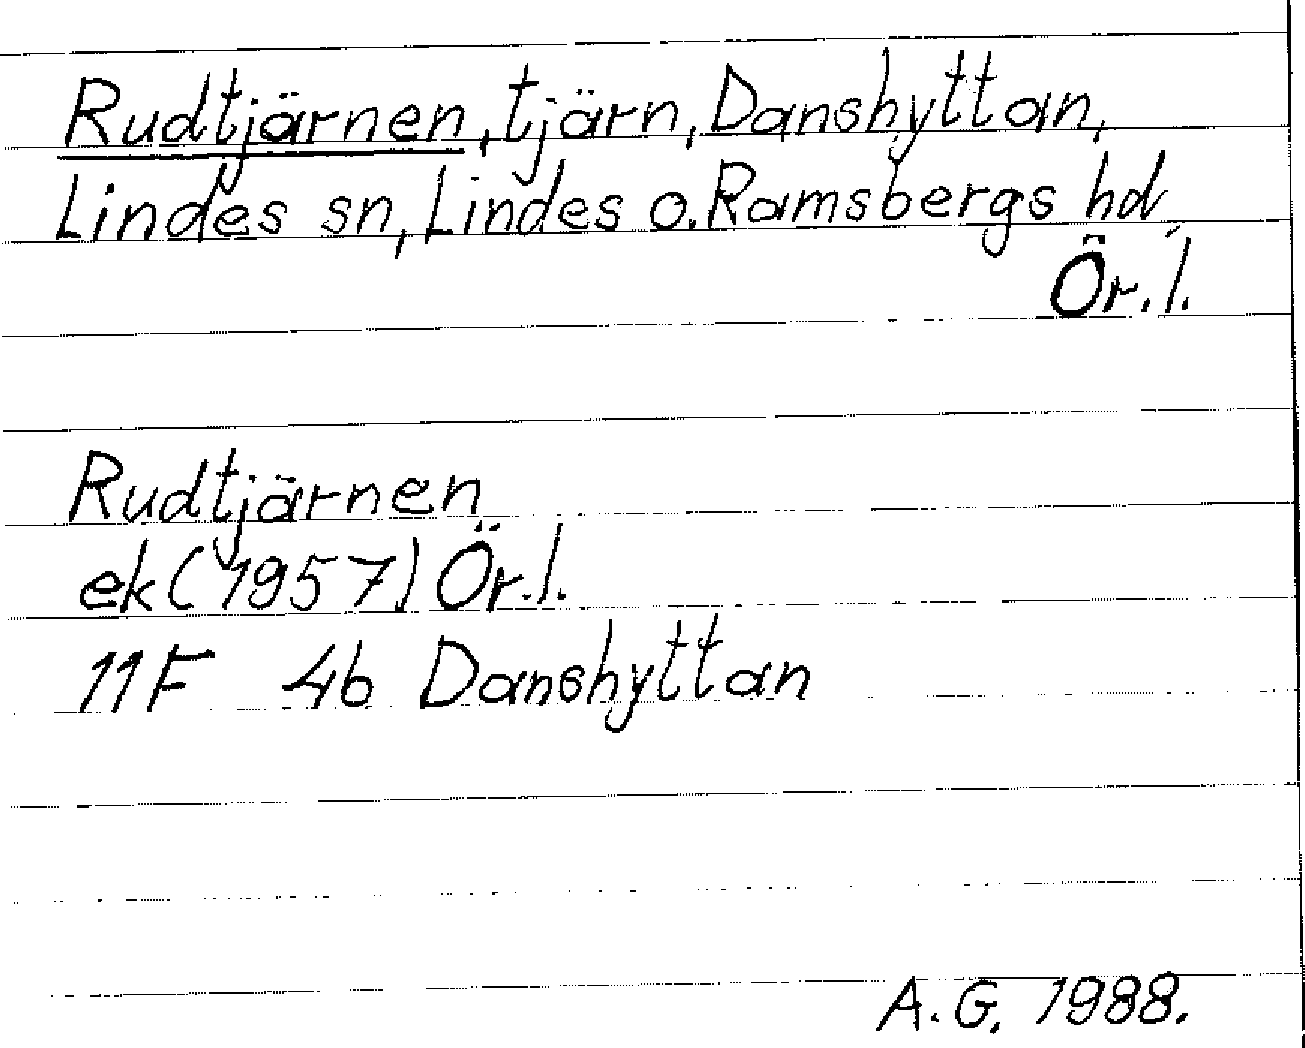 Rudtjärnen, tjärn, Danshyttan,
Lindes sn, Lindes o. Ramsbergs hd,
Ör. l.
Rudtjärnen
ek (1957) Ör. l.
11F 4b Danshyttan
A. G. 1988.